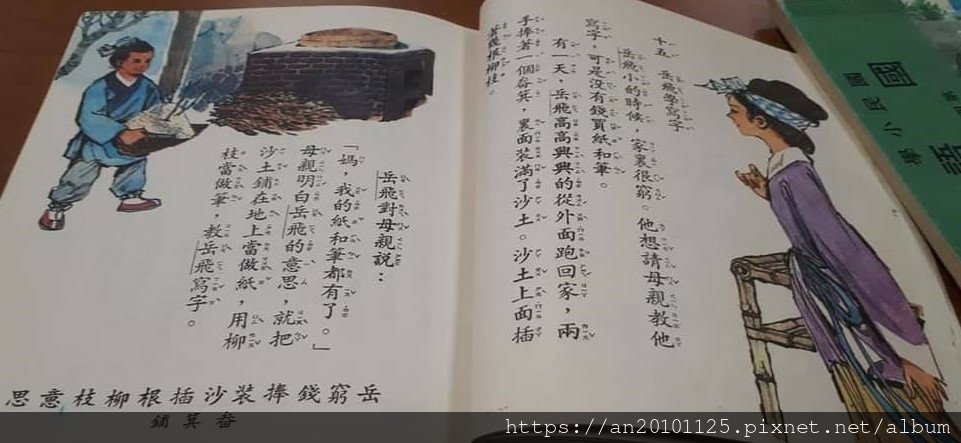 十五　岳飛學寫字
岳飛小的時候，家裏很窮。他想請母親教他
寫字，可是沒有錢買紙和筆。
有一天，岳飛高高興興的從外面跑回家，兩
手捧著一個畚箕，裏面裝滿了沙土。沙土上面插
著幾根柳枝。
岳飛對母親說：
「媽，我的紙和筆都有了。」
母親明白岳飛的意思，就把
沙土鋪在地上當做紙，用柳
枝當做筆，教岳飛寫字。
岳窮錢捧裝沙插根柳枝意思
畚箕鋪
國民小學
國
https://an20101125.pixnet.net/album